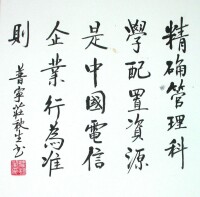 精确管理科
學配置資源
是中國電信
企業行為准
則
普寧莊秋生书